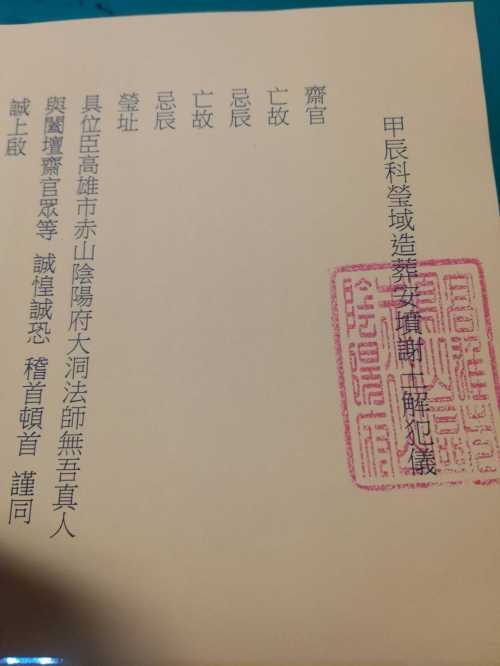 甲辰科瑩域造葬安墳謝土解犯儀
齋官
亡故
忌辰
亡故
忌辰
瑩址
具位臣高雄市赤山陰陽府大洞法師無吾真人
與闔壇齋官眾等 誠惶誠恐 稽首頓首 謹同
誠上啟